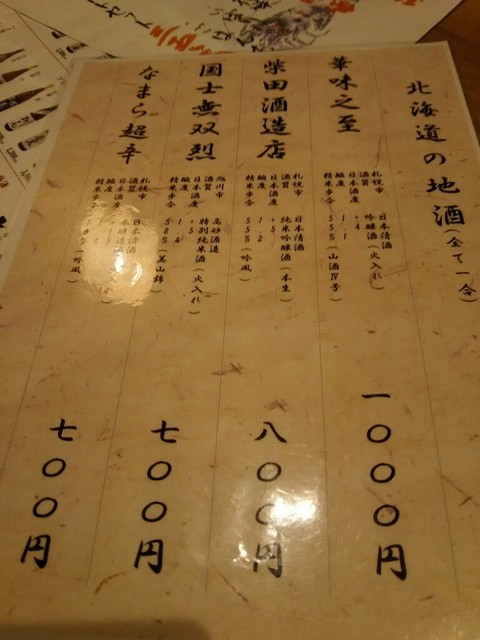 北海道の地酒(全て一合)
華味之至
札幌市 日本清酒
酒質 吟醸酒(火入れ)
日本酒度 +4
酸度 1.1
精米歩合 55%(山酒Ⅳ号)
一〇〇〇円
柴田酒造店
札幌市 日本清酒
酒質 純米吟醸酒(本生)
日本酒度 +5
酸度 1.2
精米歩合 55%(吟風)
八〇〇円
国士無双烈
旭川市 高砂酒造
酒質 特別純米酒(火入れ)
日本酒度 +5
酸度 1.4
精米歩合 58%(美山錦)
七〇〇円
なまら超辛
札幌市 日本清酒
酒質
日本酒度
酸度
精米歩合 (吟風)
七〇〇円